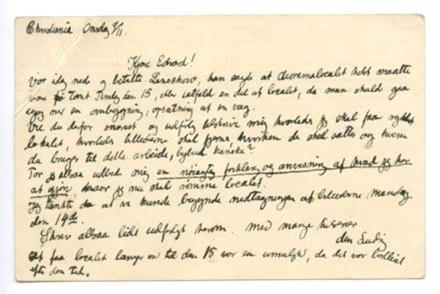 Onsdag 9/11
Kjære Edvard!
Var idag ned og betalte han sagde at dioramalocalet helst maatte
være tomt Tirsdag den 15, en del af localet, da man skulde gaa
igang med en ombygning, opsætning af en væg.
Vil du derfor snarest og udførlig mig hvorledes jeg skal faa
lokalet, hvorledes billederne skal hvordan de skal sættes og hvem
du bruger til dette arbeide, bybud kanske?
jeg altsaa udbed mig en nöiagtig forklaring og anvisning af hvad jeg har
at gjöre, naar jeg nu skal römme localet.
Jeg tænkte da at vi kunde begynde nedtagningen af billederne mandag
den 14de.
Skriv altsaa lidt udförligt herom. Med mange hilsener
din Ludvig
at faa localet længere en til den 15 var en umulighed, da det var
efter den tid.